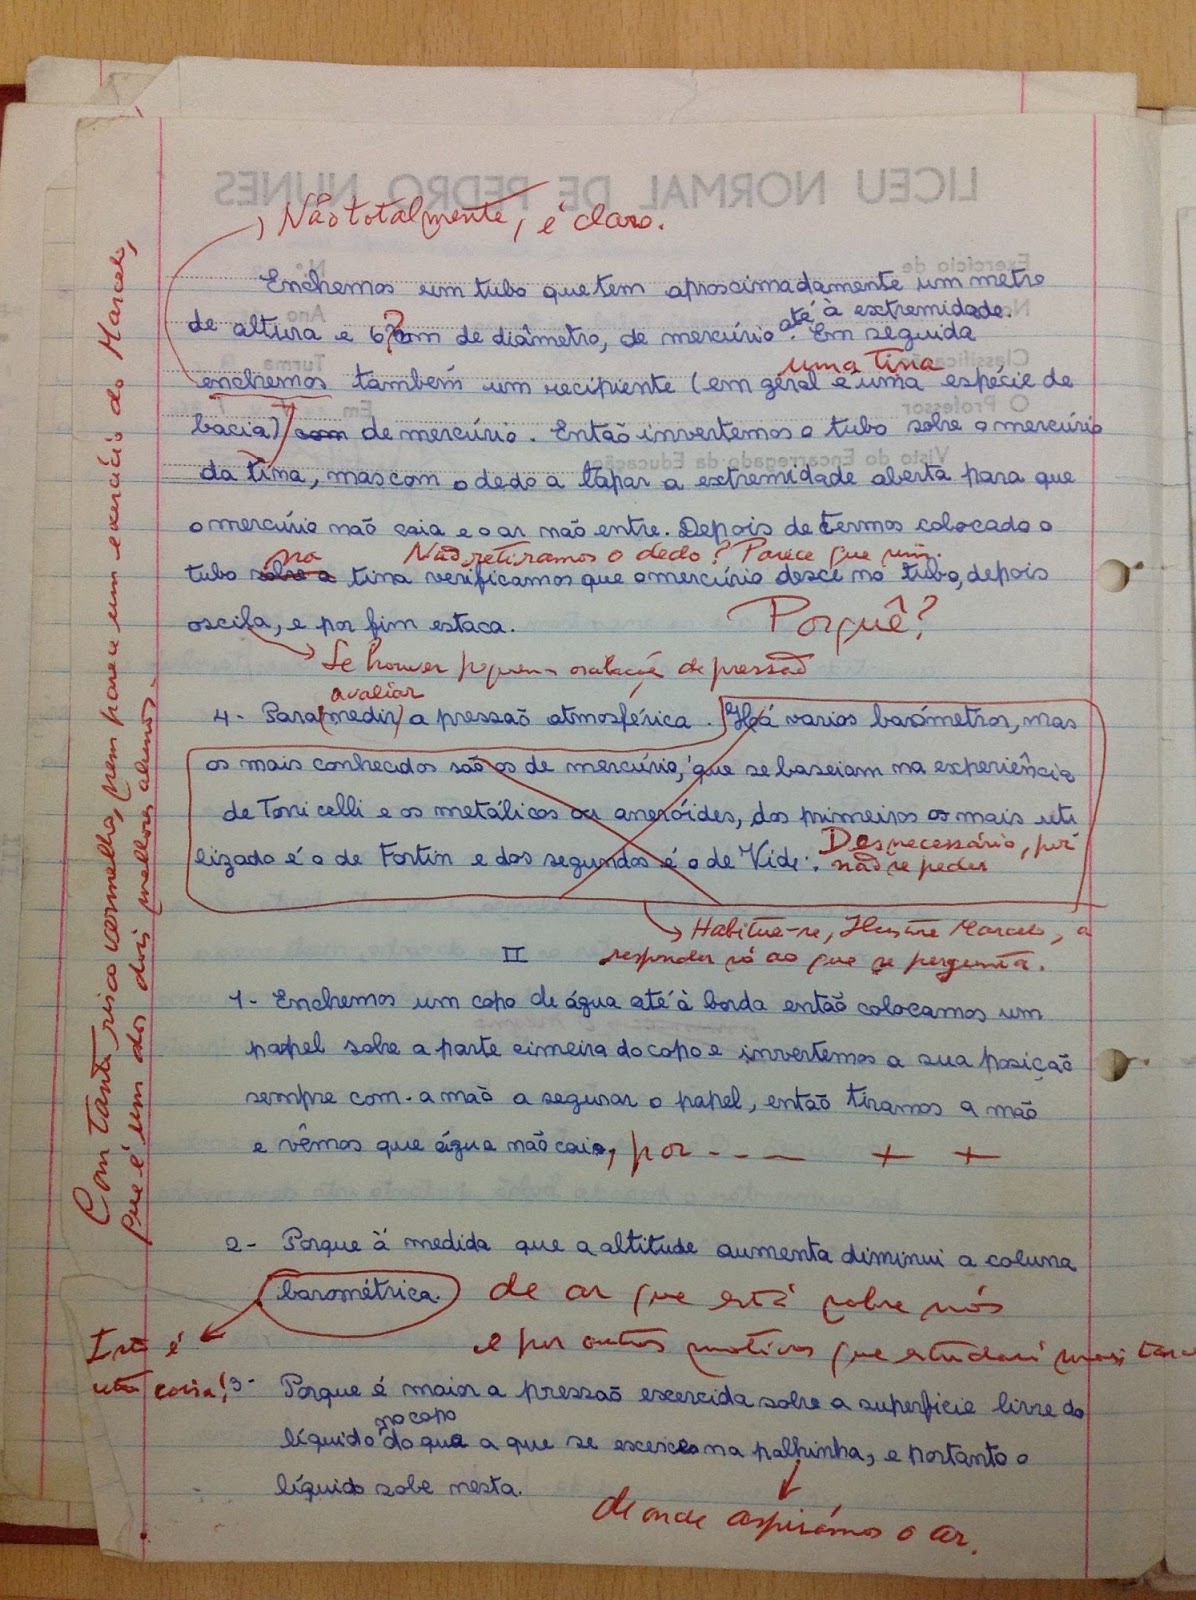 LICEU NORMAL DE PEDRO NUNES
Não totalmente, é claro.
Exercício de
N.º
Ano
Classificação
Turma
O Professor
Em
Visto do Encarregado da Educação
Enchemos um tubo que tem aproscimadamente um metro
de altura e 6 ? cm de diâmetro, de mercúrio até à extremidade. Em seguida
uma tina
enchemos também um recipiente (em geral é uma espécie de
bacia) com de mercúrio. Então invertemos o tubo sobre o mercúrio
da tina, mas com o dedo a tapar a extremidade aberta para que
o mercúrio não caia e o ar não entre. Depois de termos colocado o
na Não retiramos o dedo? Parece que sim.
tubo sobre a tina verificamos que o mercúrio desce no tubo, depois
oscila, e por fim estaca.
Porquê?
Se houver pequena oscilação de pressão
avaliar
4- Para (medir) a pressão atmosférica. Há varios barómetros, mas
os mais conhecidos são os de mercúrio, que se baseiam na experiência
de Torricelli e os metálicos ou aneróides, dos primeiros os mais uti
lizado é o de Fortin e dos segundos é o de Vidi.
Desnecessário, pois
não se pedia
Habitue-se, Ilustre Marcelo, a
responder só ao que se pergunta.
II
1- Enchemos um copo de água até à borda então colocamos um
papel sobre a parte cimeira do copo e invertemos a sua posição
sempre com a mão a segurar o papel, então tiramos a mão
e vêmos que água não caia, por - - — + +
2- Porque à medida que a altitude aumenta diminui a coluna
barométrica. de ar que está sobre nós
e por outros motivos que estudará mais tarde
Isto é
outra coisa!
3- Porque é maior a pressão escercida sobre a superficie livre do
líquido no copo do que a que se escerce na palhinha, e portanto o
líquido sobe nesta.
de onde aspirámos o ar.
Com tanto risco vermelho, nem parece um exercício do Marcelo,
que é um dos dois melhores alunos.